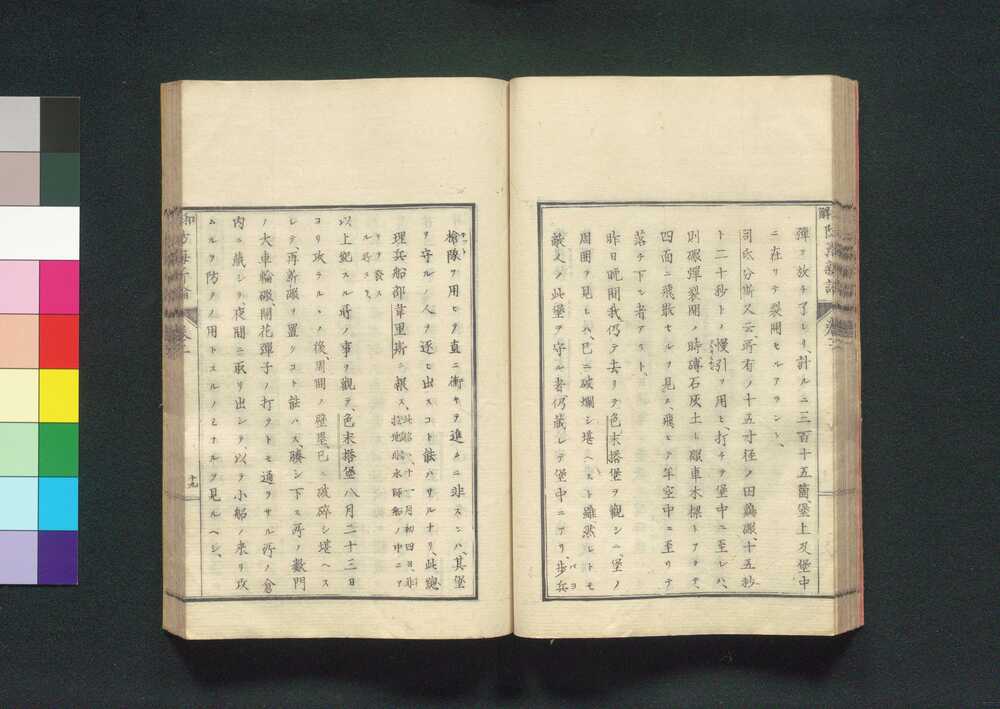 彈ヲ放チ了レリ、計ルニ三百十五箇、堡上及堡中
ニ在リテ裂開セルアラン、
司氏分斯又云、所有ノ十五寸径ノ田龔礮、十五秒
ト二十秒トノ慢引ヲ用ヒ、打チテ堡中ニ至レハ、
則礮彈裂開ノ時、磚石灰土ト礮車木標トヲシテ、
四面ニ飛散セルヲ見ス、飛ヒテ半空中ニ至リテ
落チ下ル者アリト、
昨日晩間、我仍テ去リテ色末搭堡ヲ觀シニ、堡ノ
周圍ヲ見レハ、已ニ破爛シ堪ヘスト雖、然レトモ
敵人ノ此堡ヲ守ル者、仍蔵レテ堡中ニアリ、歩兵
槍隊ヲ用ヒテ直ニ衝キテ進ムニ非スンハ、其堡
ヲ守ルノ人ヲ逐ヒ出スコト能ハサルナリ、此總
理兵船部韋里斯ニ報ス、
以上紀スル所ノ事ヲ觀テ、色末搭堡八月二十三日
ヨリ攻ラルヽノ後、周圍ノ壁壘、已ニ破碎シ堪ヘス
レテ、再新礮ヲ置クコト能ハス、賸シ下ス所ノ數門
ノ大車輪礮、開花彈子ノ打ツトモ通ラサル所ノ倉
内ニ蔵シテ、夜間ニ取リ出シテ以テ小船ノ来リ攻
ムルヲ防クノ用トスルノミナルヲ見ルヘシ、
十九